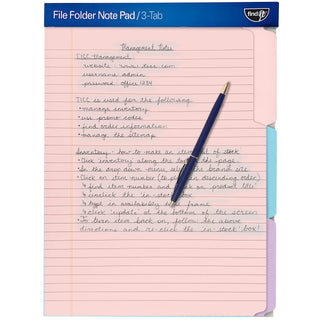 File Folder Note Pad / 3-Tab
find It
Management Notes
TICC Management
website: www.ticc.com
username: admin
password: office1234
TICC is used for the following
• manage inventory
• use promo codes
• find order information
• manage the sitemap
Inventory - how to make an item out of stock
• Click 'inventory' along the top of the page.
• In the drop down menu, click the brand site
• Click on item number (to place in descending order)
find item number and click on product title
unclick the 'in stock' box
type in availability time frame
click 'update' at the bottom of the screen
• To turn item back on, follow the above
directions and re-click the 'in stock' box!